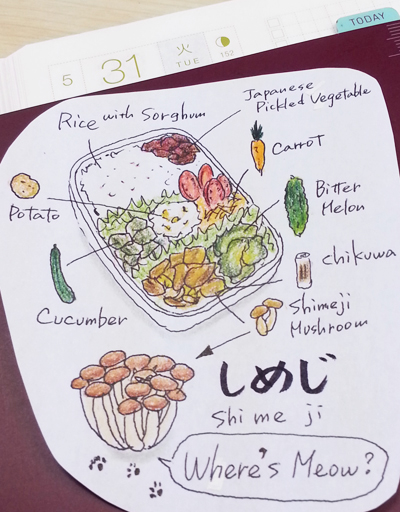 TODAY
5 31 火 TUE 152
Rice with Sorghum
Japanese
Pickled Vegetable
Carrot
Potato
Bitter
Melon
chikuwa
Cucumber
Shimeji
Mushroom
しめじ
Shi me ji
Where's Meow?